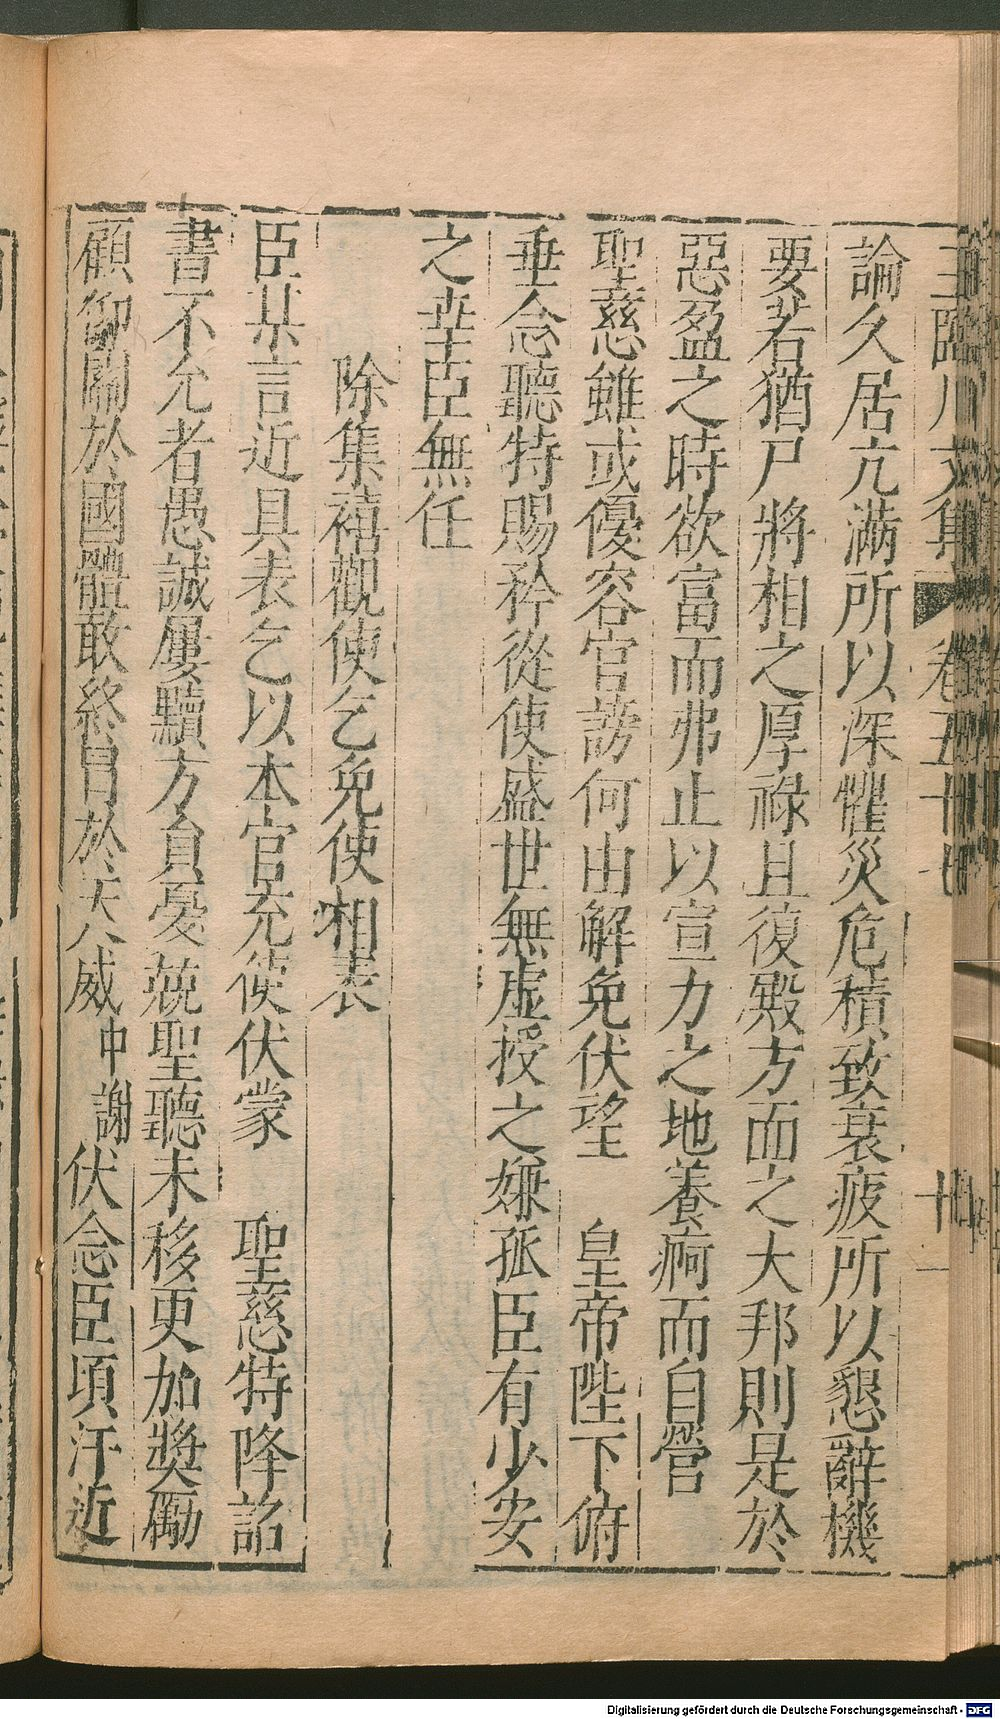 王臨川文集 卷五十七 十一
論久居亢滿所以深懼災危積致衰疲所以懇辭機
要若猶尸將相之厚祿且復殿方面之大邦則是於
惡盈之時欲富而弗止以宣力之地養痾而自營
聖慈雖或優容官謗何由解免伏望 皇帝陛下俯
垂念聽特賜矜從使盛世無虛授之嫌孤臣有少安
之幸臣無任
除集禧觀使乞免使相表
臣某言近具表乞以本官充使伏蒙 聖慈特降詔
書不允者愚誠屢黷方負憂兢聖聽未移更加奬勵
顧仰關於國體敢終冒於天威中謝伏念臣頃汗近
Digitalisierung gefördert durch die Deutsche Forschungsgemeinschaft - DFG